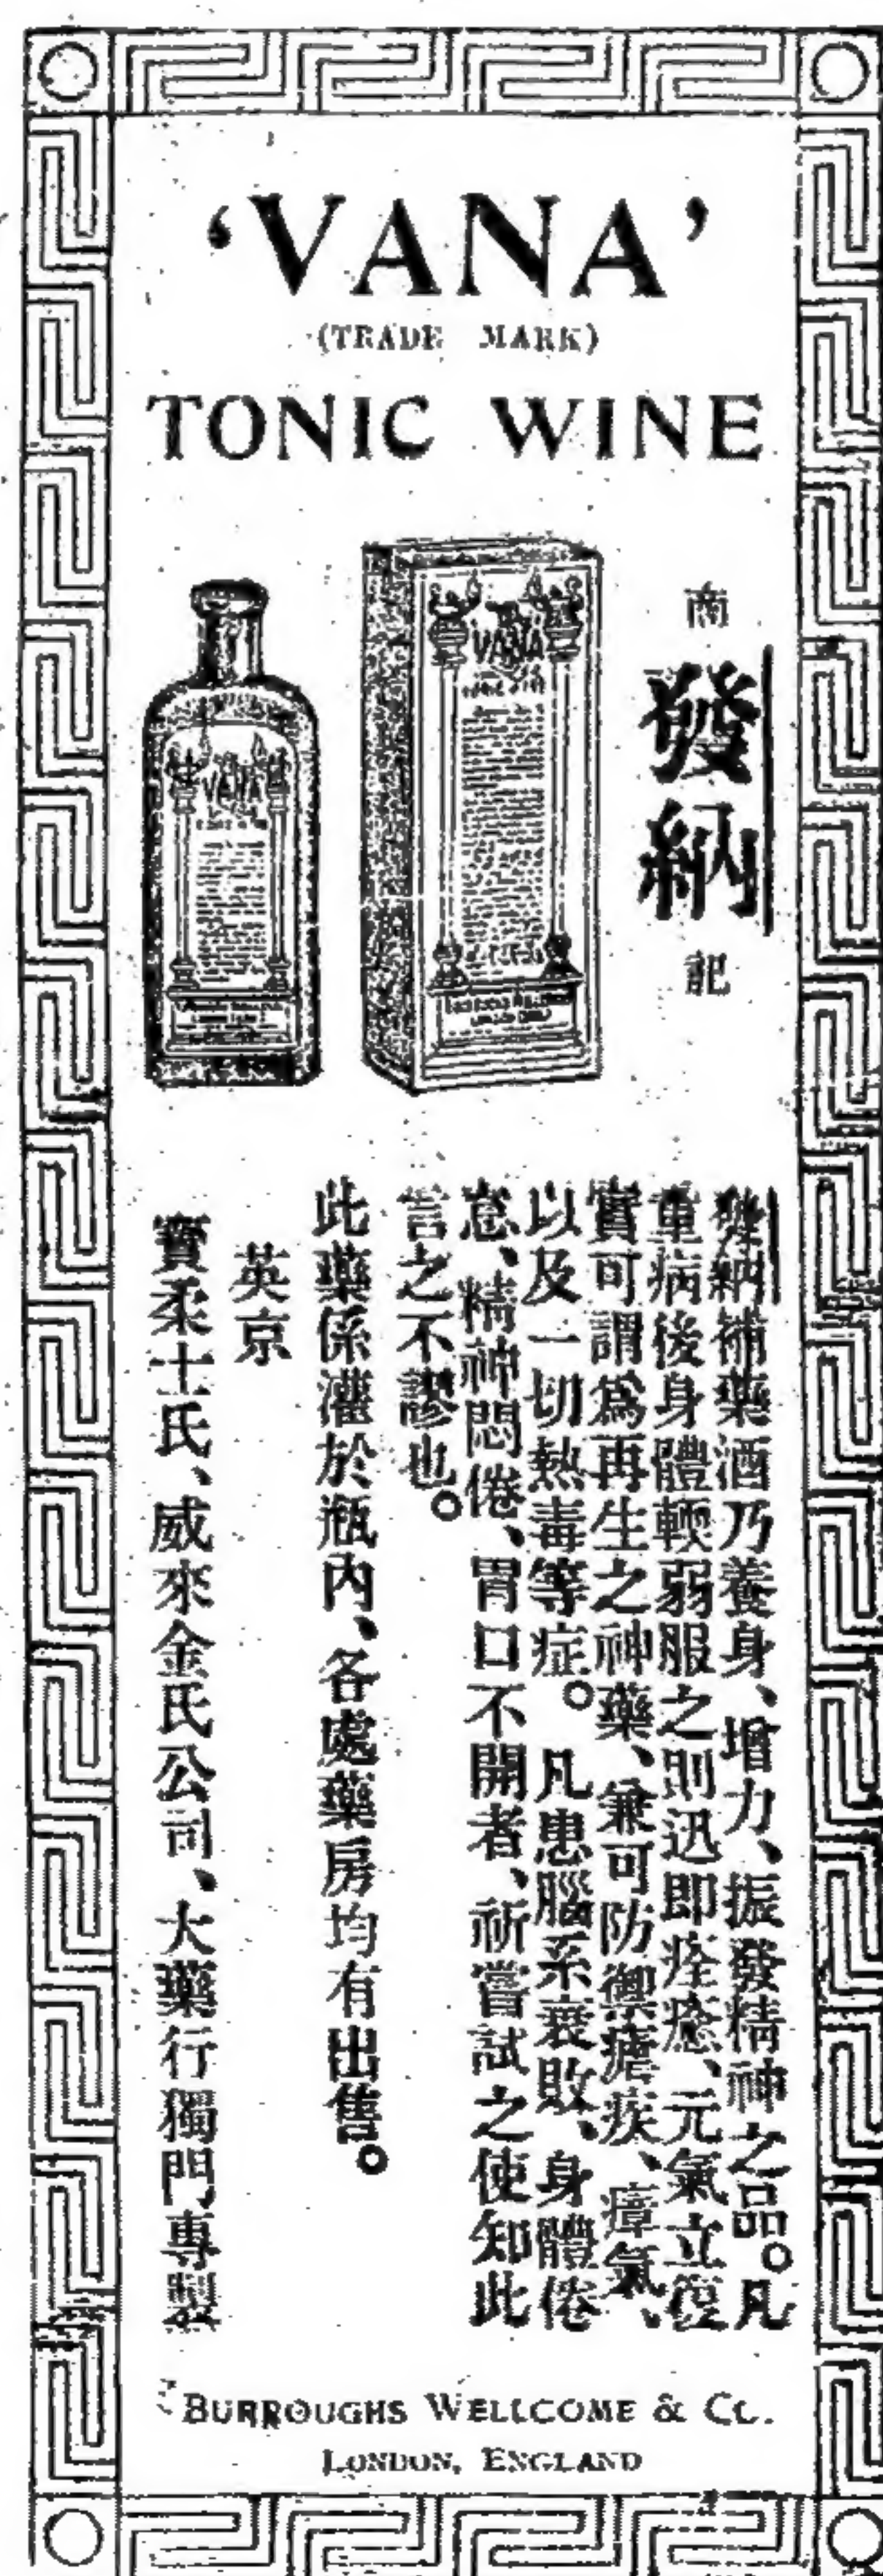 ‘VANA’
(TRADE MARK)
TONIC WINE
VANA
VANA
商
發納
記
發納補藥酒乃養身、增力、振發精神之品。凡
重病後身體輭弱服之則迅即痊癒、元氣立復
實可謂爲再生之神藥、兼可防禦瘧疾、瘴氣、
以及一切熱毒等症。凡患腦系衰敗、身體倦
怠、精神悶倦、胃口不開者、祈嘗試之使知此
言之不謬也。
此藥係灌於瓶內、各處藥房均有出售。
英京
寶柔士氏、威來金氏公司、大藥行獨門專製
BURROUGHS WELLCOME & CO.
LONDON, ENGLAND